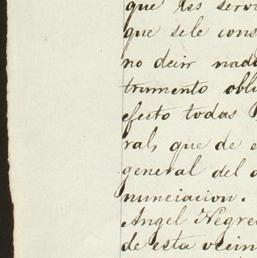 que les serv
que sele cons
no decir nad
trumento obli
efecto todas
ral, que de e
general del
nunciacion.
Angel Negre
de esta vecin